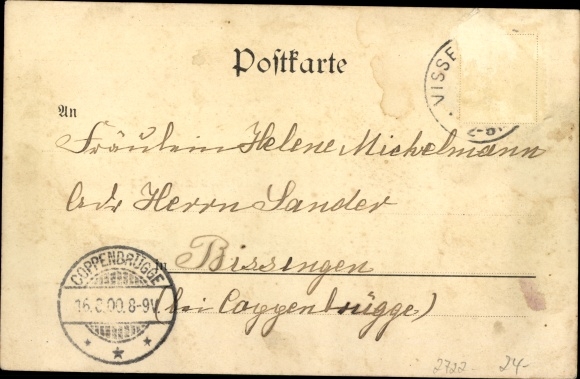 Postkarte
VISSE
An
Fräulein Helene Michelmann
Adr Herrn Sander
in Bissingen
(bei Coppenbrügge)
COPPENBRÜGGE
16.8.00.8-9V
2722- 24-